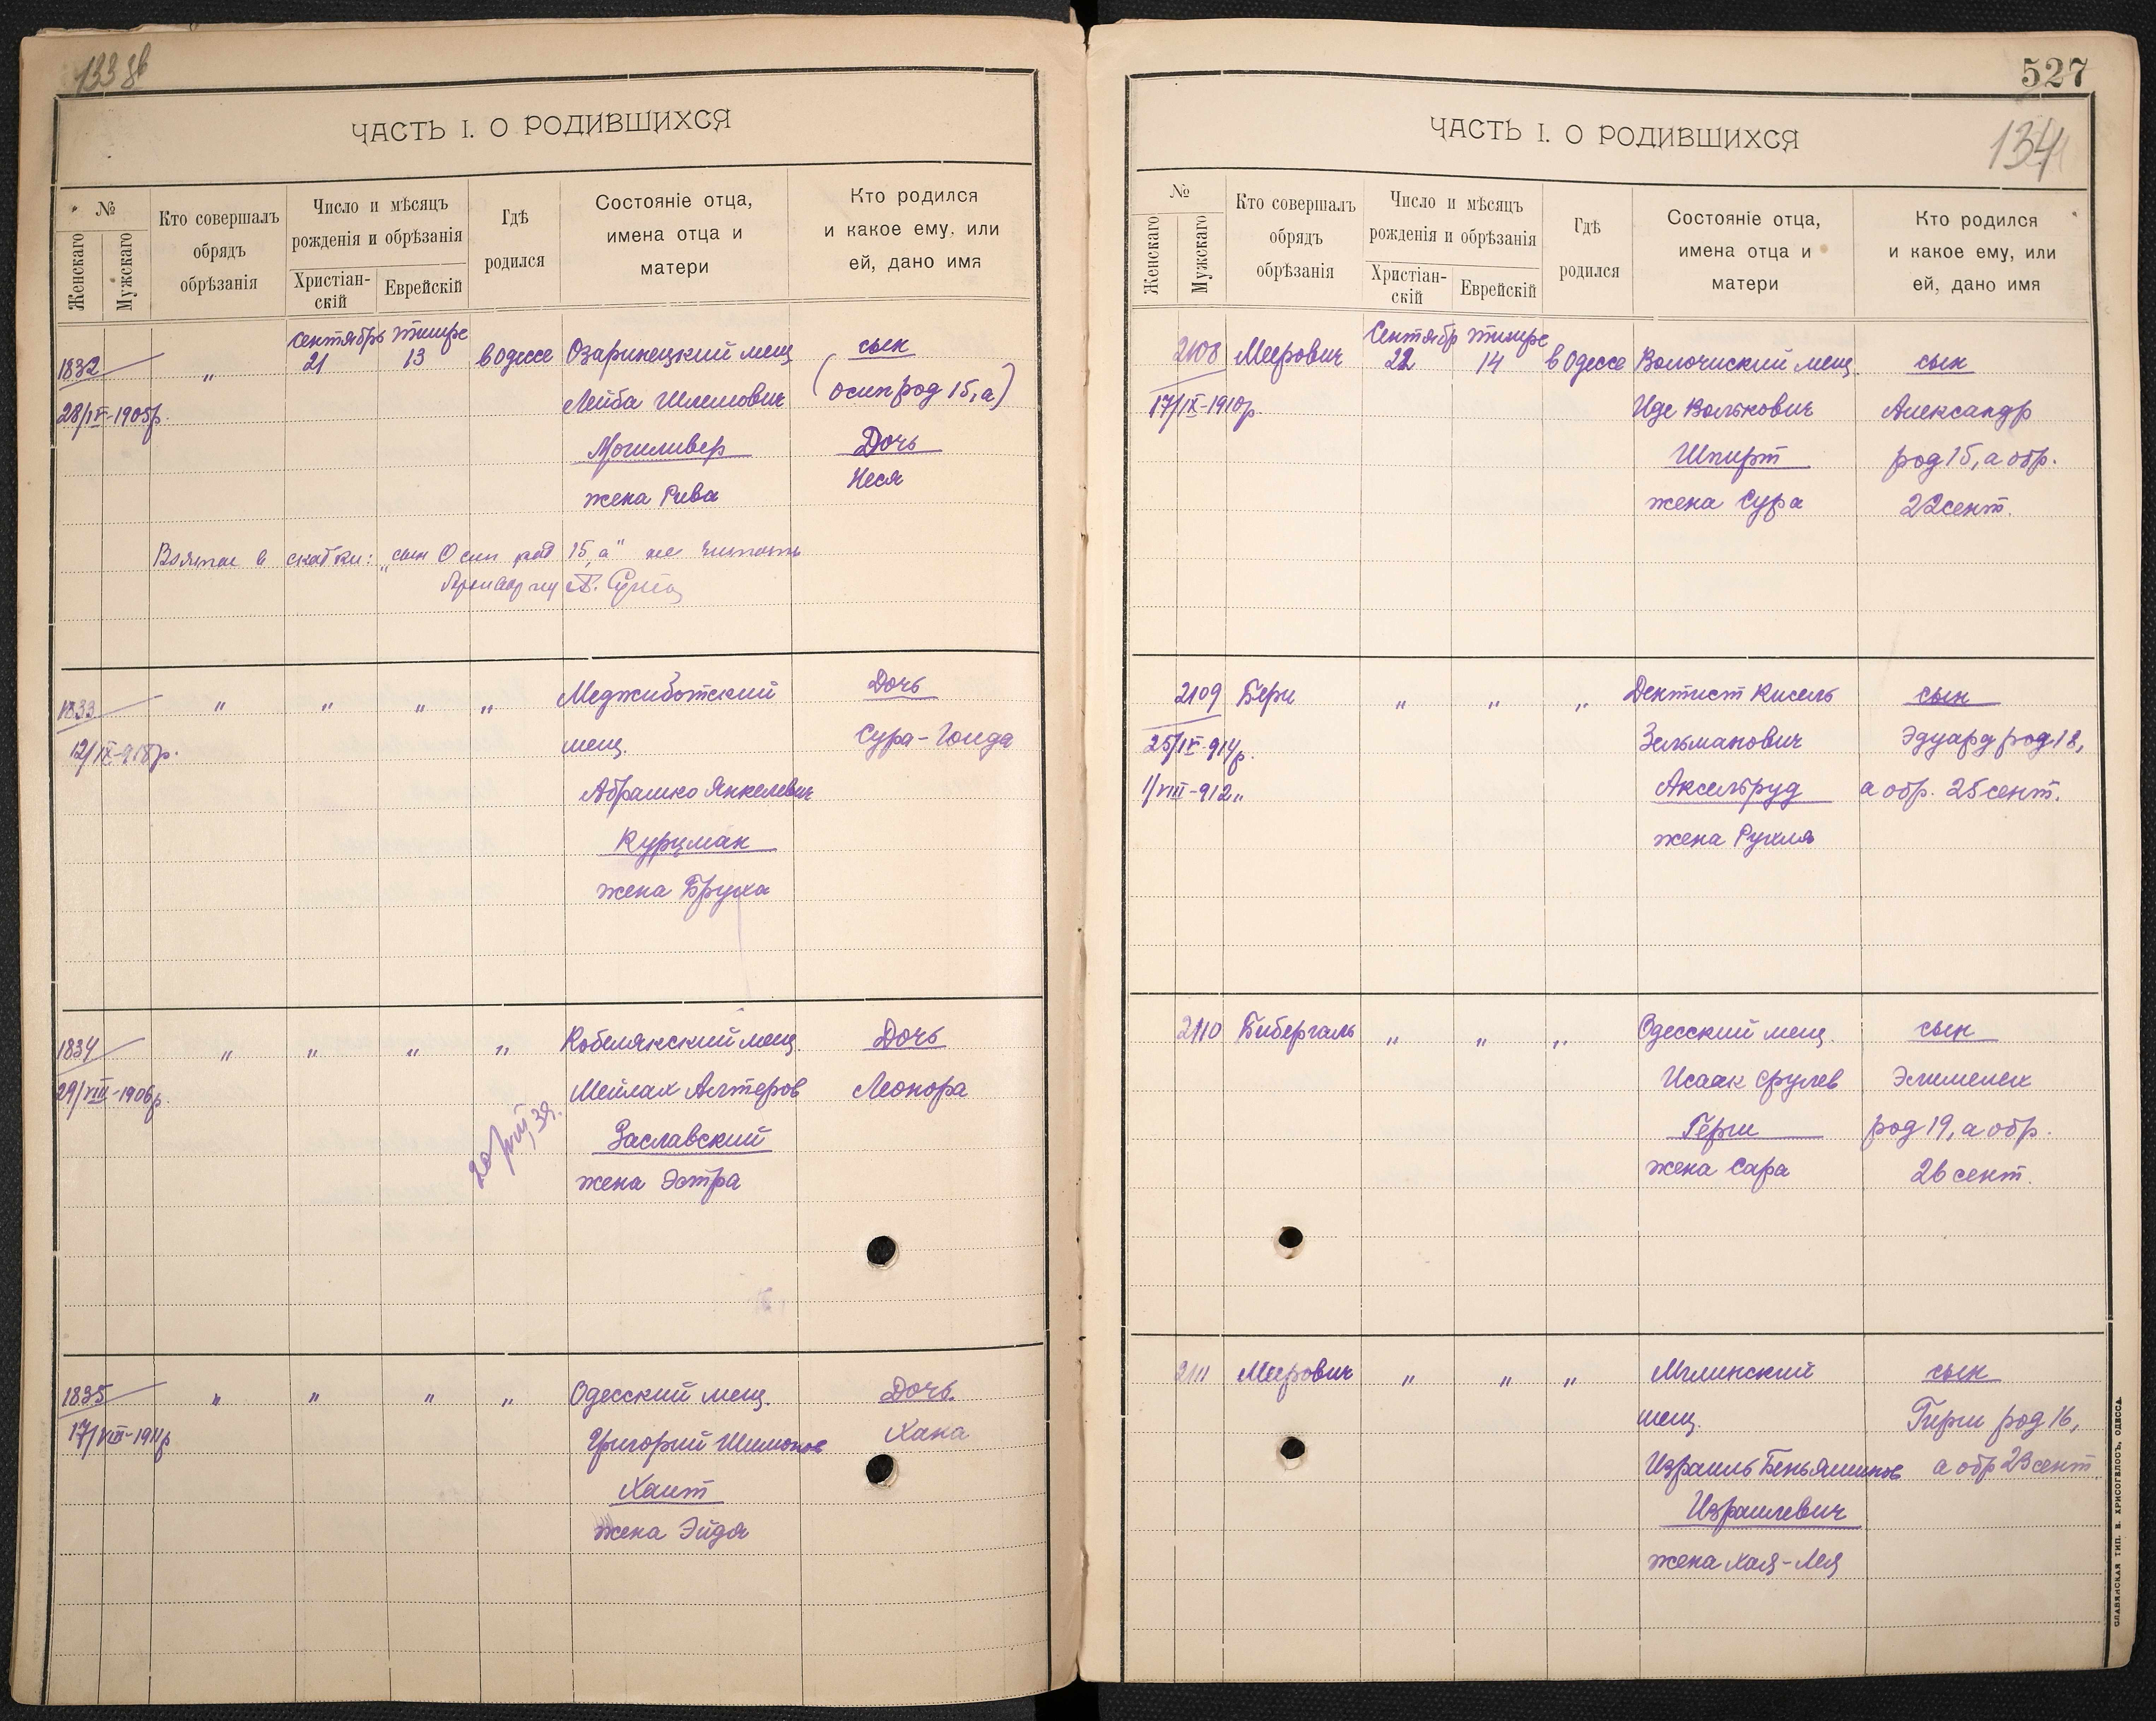 133 об
ЧАСТЬ I. О РОДИВШИХСЯ
№
Женскаго
Мужскаго
Кто совершалъ
обрядъ
обрѣзанія
Число и мѣсяцъ
рожденія и обрѣзанія
Христіан-
скій
Еврейскій
Гдѣ
родился
Состояніе отца,
имена отца и
матери
Кто родился
и какое ему, или
ей, дано имя
1832 „ Сентябрь 21 тишре 13 в Одессе Озаринецкий мещ сын
28/IX-1905р. Лейба Шлемович (осип род 15, а)
Могиливер Дочь
жена Рива Неся
Взятое в скобки: „сын Осип род 15, а" не читать
1833 „ „ „ „ Меджиботский Дочь
12/IX-918р. мещ. Сура-Голда
Абрашко Янкелевич
Курцман
жена Бруха
1834 „ „ „ „ Кобелякский мещ. Дочь
29/VIII-1906р. Мейлах Алтеров Леонора
Заславский
жена Эстра
1835 „ „ „ „ Одесский мещ. Дочь
17/VIII-1911р Григорий Шимонов Хана
Хаит
жена Эйдя
527
134
ЧАСТЬ I. О РОДИВШИХСЯ
№
Женскаго
Мужскаго
Кто совершалъ
обрядъ
обрѣзанія
Число и мѣсяцъ
рожденія и обрѣзанія
Христіан-
скій
Еврейскій
Гдѣ
родился
Состояніе отца,
имена отца и
матери
Кто родился
и какое ему, или
ей, дано имя
2108 Меерович Сентябр 22 тишре 14 в Одессе Волочиский мещ. сын
17/IX-1910р. Иде Волькович Александр
Шпирт род 15, а обр.
жена Сура 22 сент.
2109 Бери „ „ „ Дентист Кисель сын
25/IX-914р. Зельманович Эдуард род 18,
1/VIII-912„ Аксельруд а обр. 25 сент.
жена Рухля
2110 Бибергаль „ „ „ Одесский мещ. сын
Исаак Срулев Элимелех
Герш род 19, а обр.
жена Сара 26 сент.
2111 Меерович „ „ „ Мглинский сын
мещ. Гирш род 16,
Израиль Беньяминов а обр 23 сент.
Израилевич
жена Хая-Лея
СЛАВЯНСКАЯ ТИП. Н. ХРИСОГЕЛОСЪ, ОДЕССА.